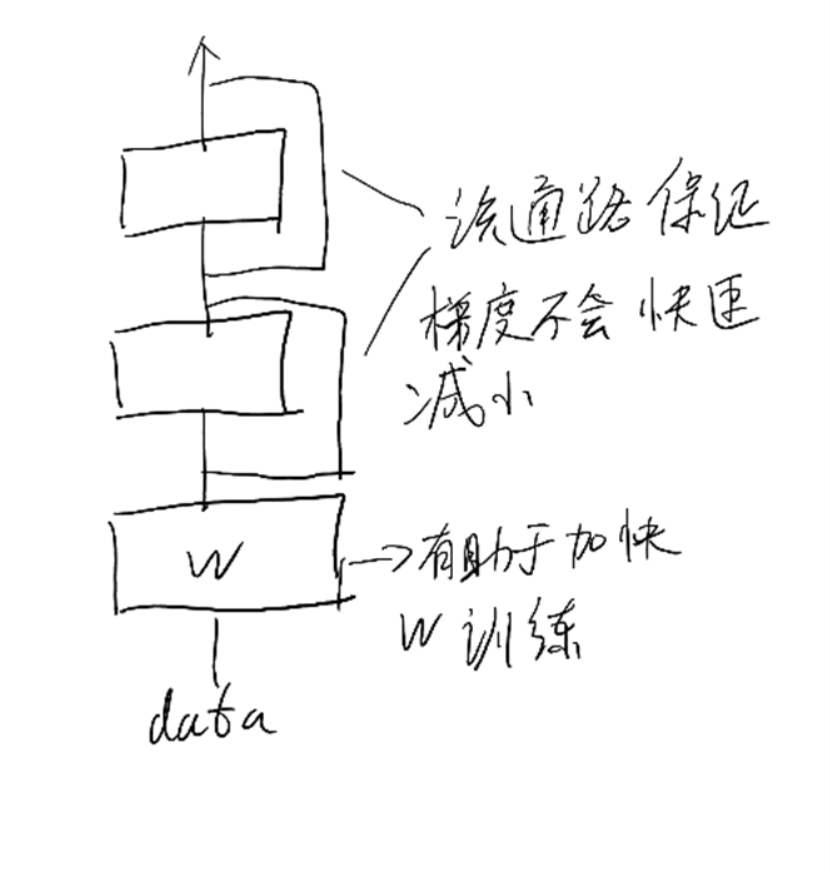 该通路保证
梯度不会快速
减小
W
→有助于加快
W训练
data